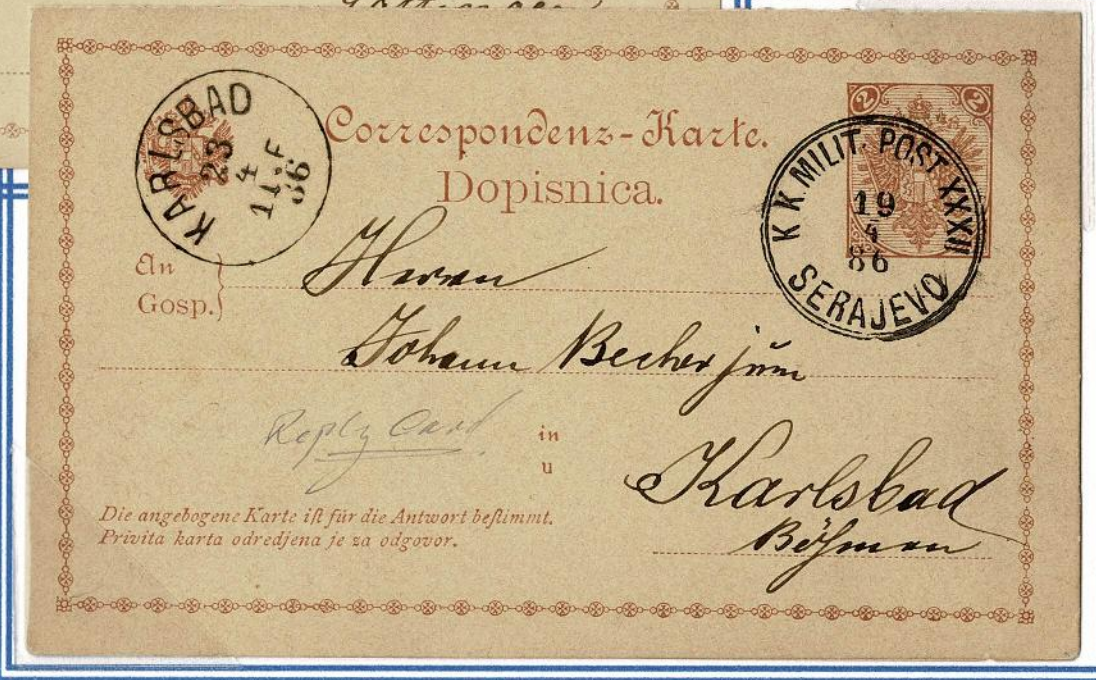 KARLSBAD
23
4
11.F
86
Correspondenz-Karte.
Dopisnica.
2 2
K. K. MILIT. POST XXXII
19
4
86
SERAJEVO
An
Gosp.
Herrn
Johann Becher jun
Reply Card.
in
u
Karlsbad
Böhmen
Die angebogene Karte ist für die Antwort bestimmt.
Privita karta odredjena je za odgovor.